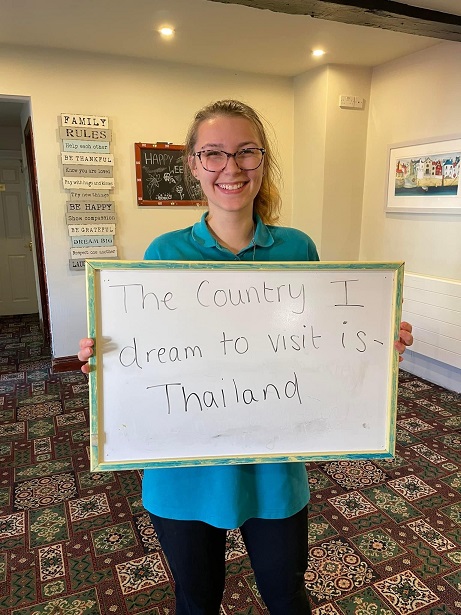 FAMILY
RULES
Help each other
BE THANKFUL
Know you are loved
Pay with hugs and kisses
Try new things
BE HAPPY
Show compassion
BE GRATEFUL
DREAM BIG
Respect one another
HAPPY
The Country I
dream to visit is-
Thailand